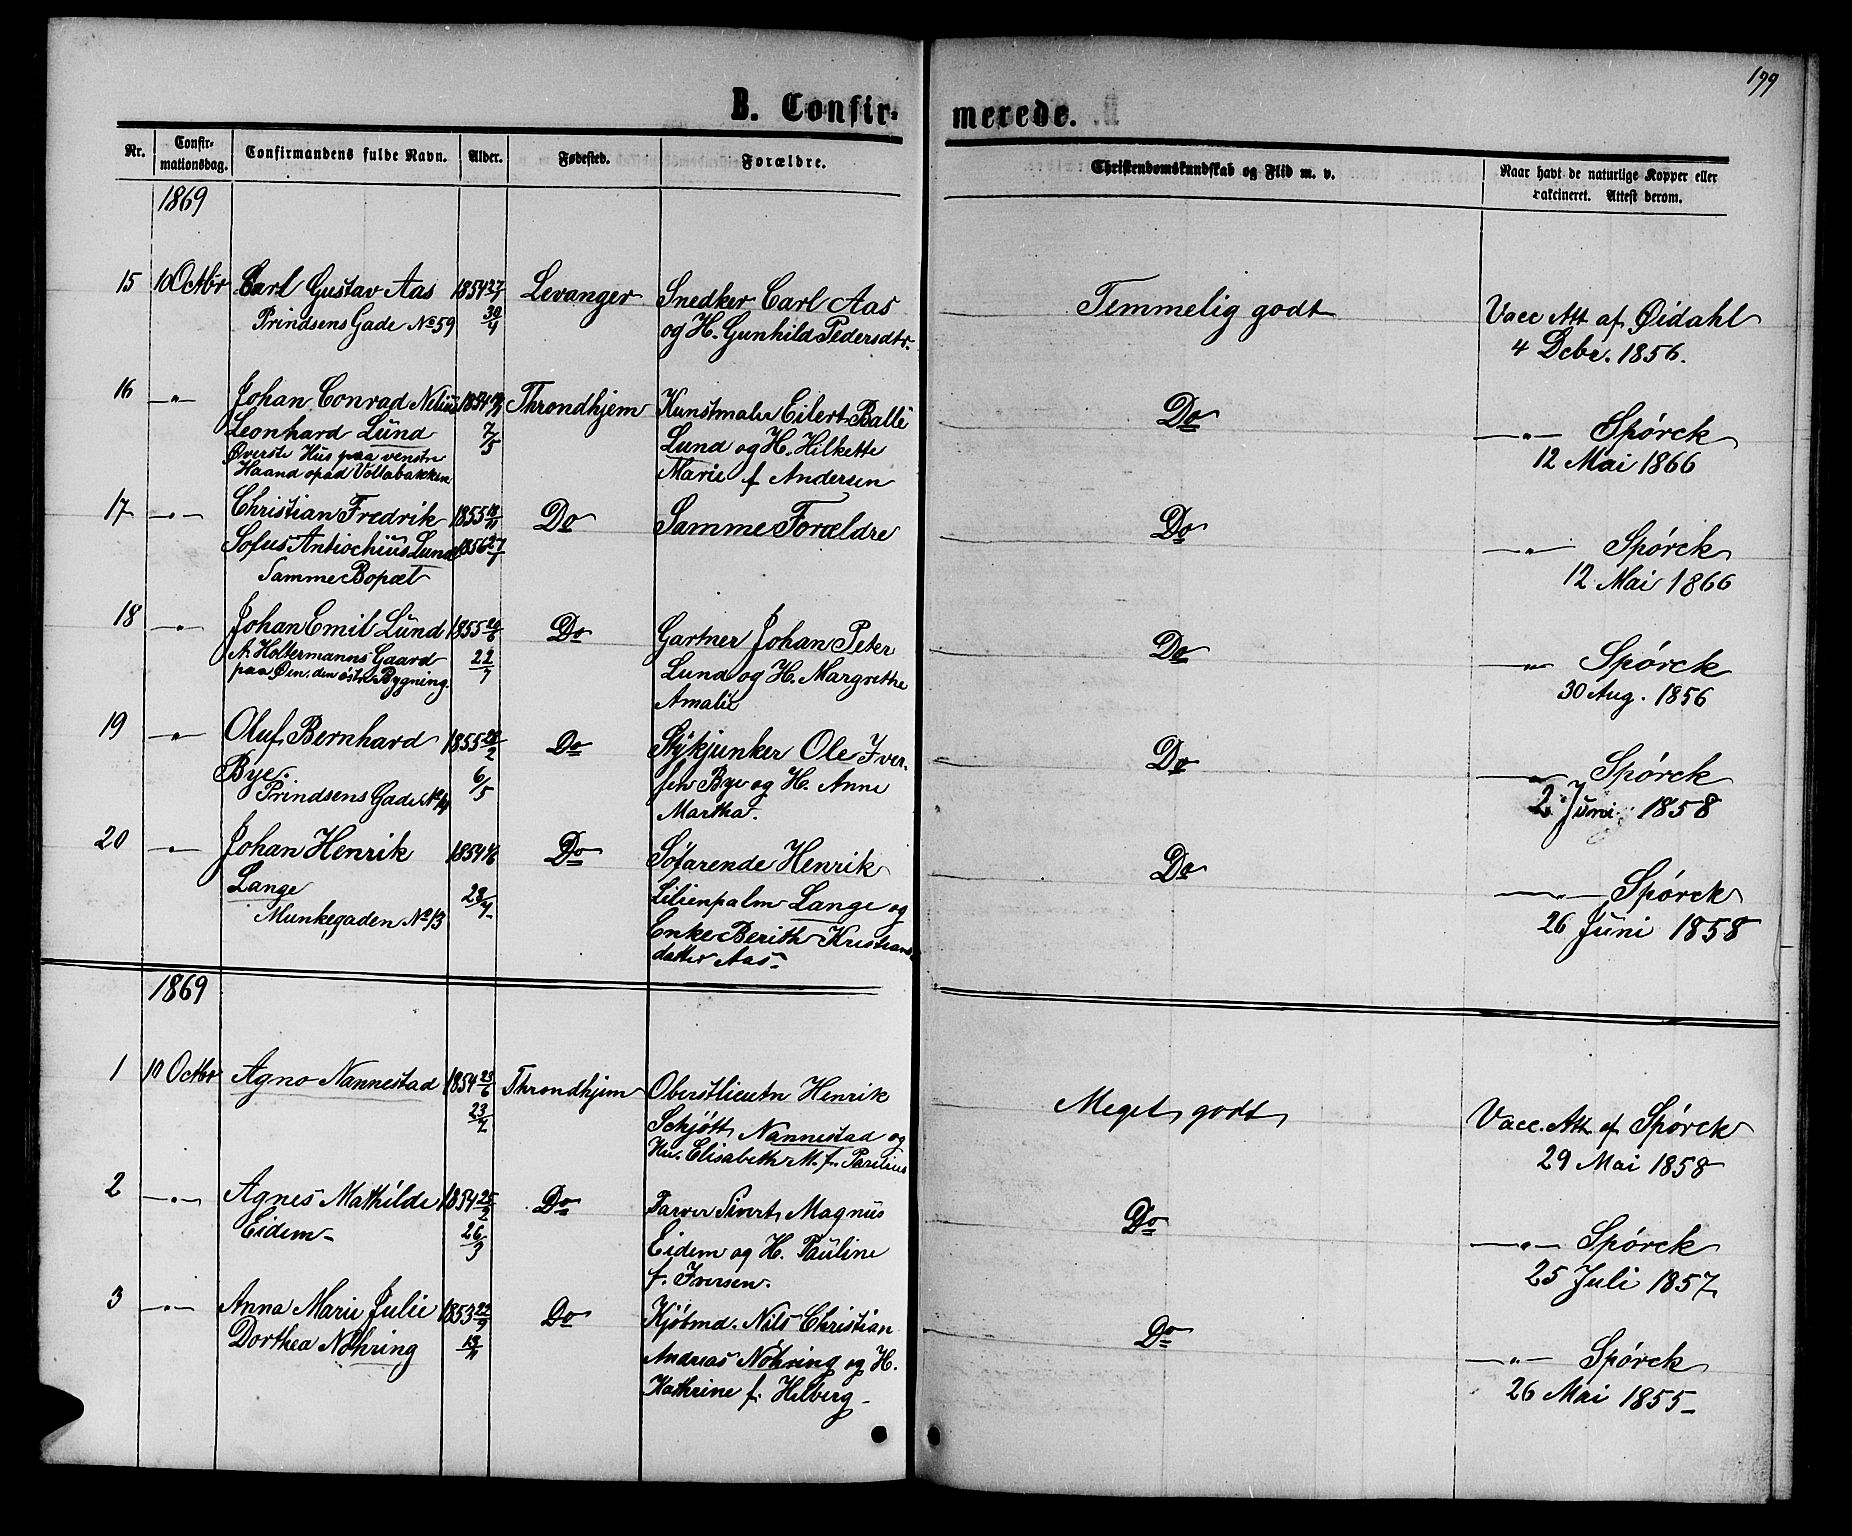 199
B. Confirmerede.
Nr. Confirmationsdag. Confirmandens fulde Navn. Alder. Fødested. Forældre. Christendomskundskab og Flid m. v. Naar havt de naturlige Kopper eller vakcineret. Attest derom.
1869
15 10 Octbr Carl Gustav Aas 1854 27/1 Levanger Snedker Carl Aas Temmelig godt Vacc Att af Øidahl
Prindsens Gade No 59 30/4 og H. Gunhild Pedersdtr. 4 Debr. 1856.
16 -"- Johan Conrad Nelius 1854 Throndhjem Kunstmaler Eilert Balle Do -"- Spørck
Leonhard Lund 7/5 Lund og H. Hilkette 12 Mai 1866
Øverste Hus paa venstre Marie f. Andersen
Haand opad Vollabakken
17 -"- Christian Fredrik 1855 18/11 Do Samme Forældre Do -"- Spørck
Sofus Antiochius Lund 1856 27/1 12 Mai 1866
Samme Bopæl
18 -"- Johan Emil Lund 1855 Do Gartner Johan Peter Do -"- Spørck
A. Holtermanns Gaard 22/7 Lund og H. Margrethe 30 Aug. 1856
paa Øen, den østre Bygning. Amalie
19 -"- Oluf Bernhard 1855 Do Stykjunker Ole Iver- Do -"- Spørck
Bye. 6/5 sen Bye og H. Anne 2 Juni 1858
Prindsens Gade No Martha.
20 -"- Johan Henrik 1854 Do Søfarende Henrik Do -"- Spørck
Lange Lilienpalm Lange og 26 Juni 1858
Munkegaden No 13 Enke Berith Kristians
datter Aas
1869
1 10 Octbr Agno Nannestad 1854 23/6 Throndhjem Oberstlieutn Henrik Meget godt Vacc. Att af Spørck
Schjøtt Nannestad og 29 Mai 1858
Hu. Elisabeth M. f.
2 -"- Agnes Mathilde 1854 25/2 Do Farver Sivert Magnus Do -"- Spørck
Eidem 26/3 Eidem og H. Pauline 25 Juli 1857
f. Iversen.
3 -"- Anna Marie Julie 1853 22/9 Do Kjøbmd. Nils Christian Do -"- Spørck
Dorthea Nøhring 13/11 Andreas Nøhring og H. 26 Mai 1855
Kathrine f. Hilberg